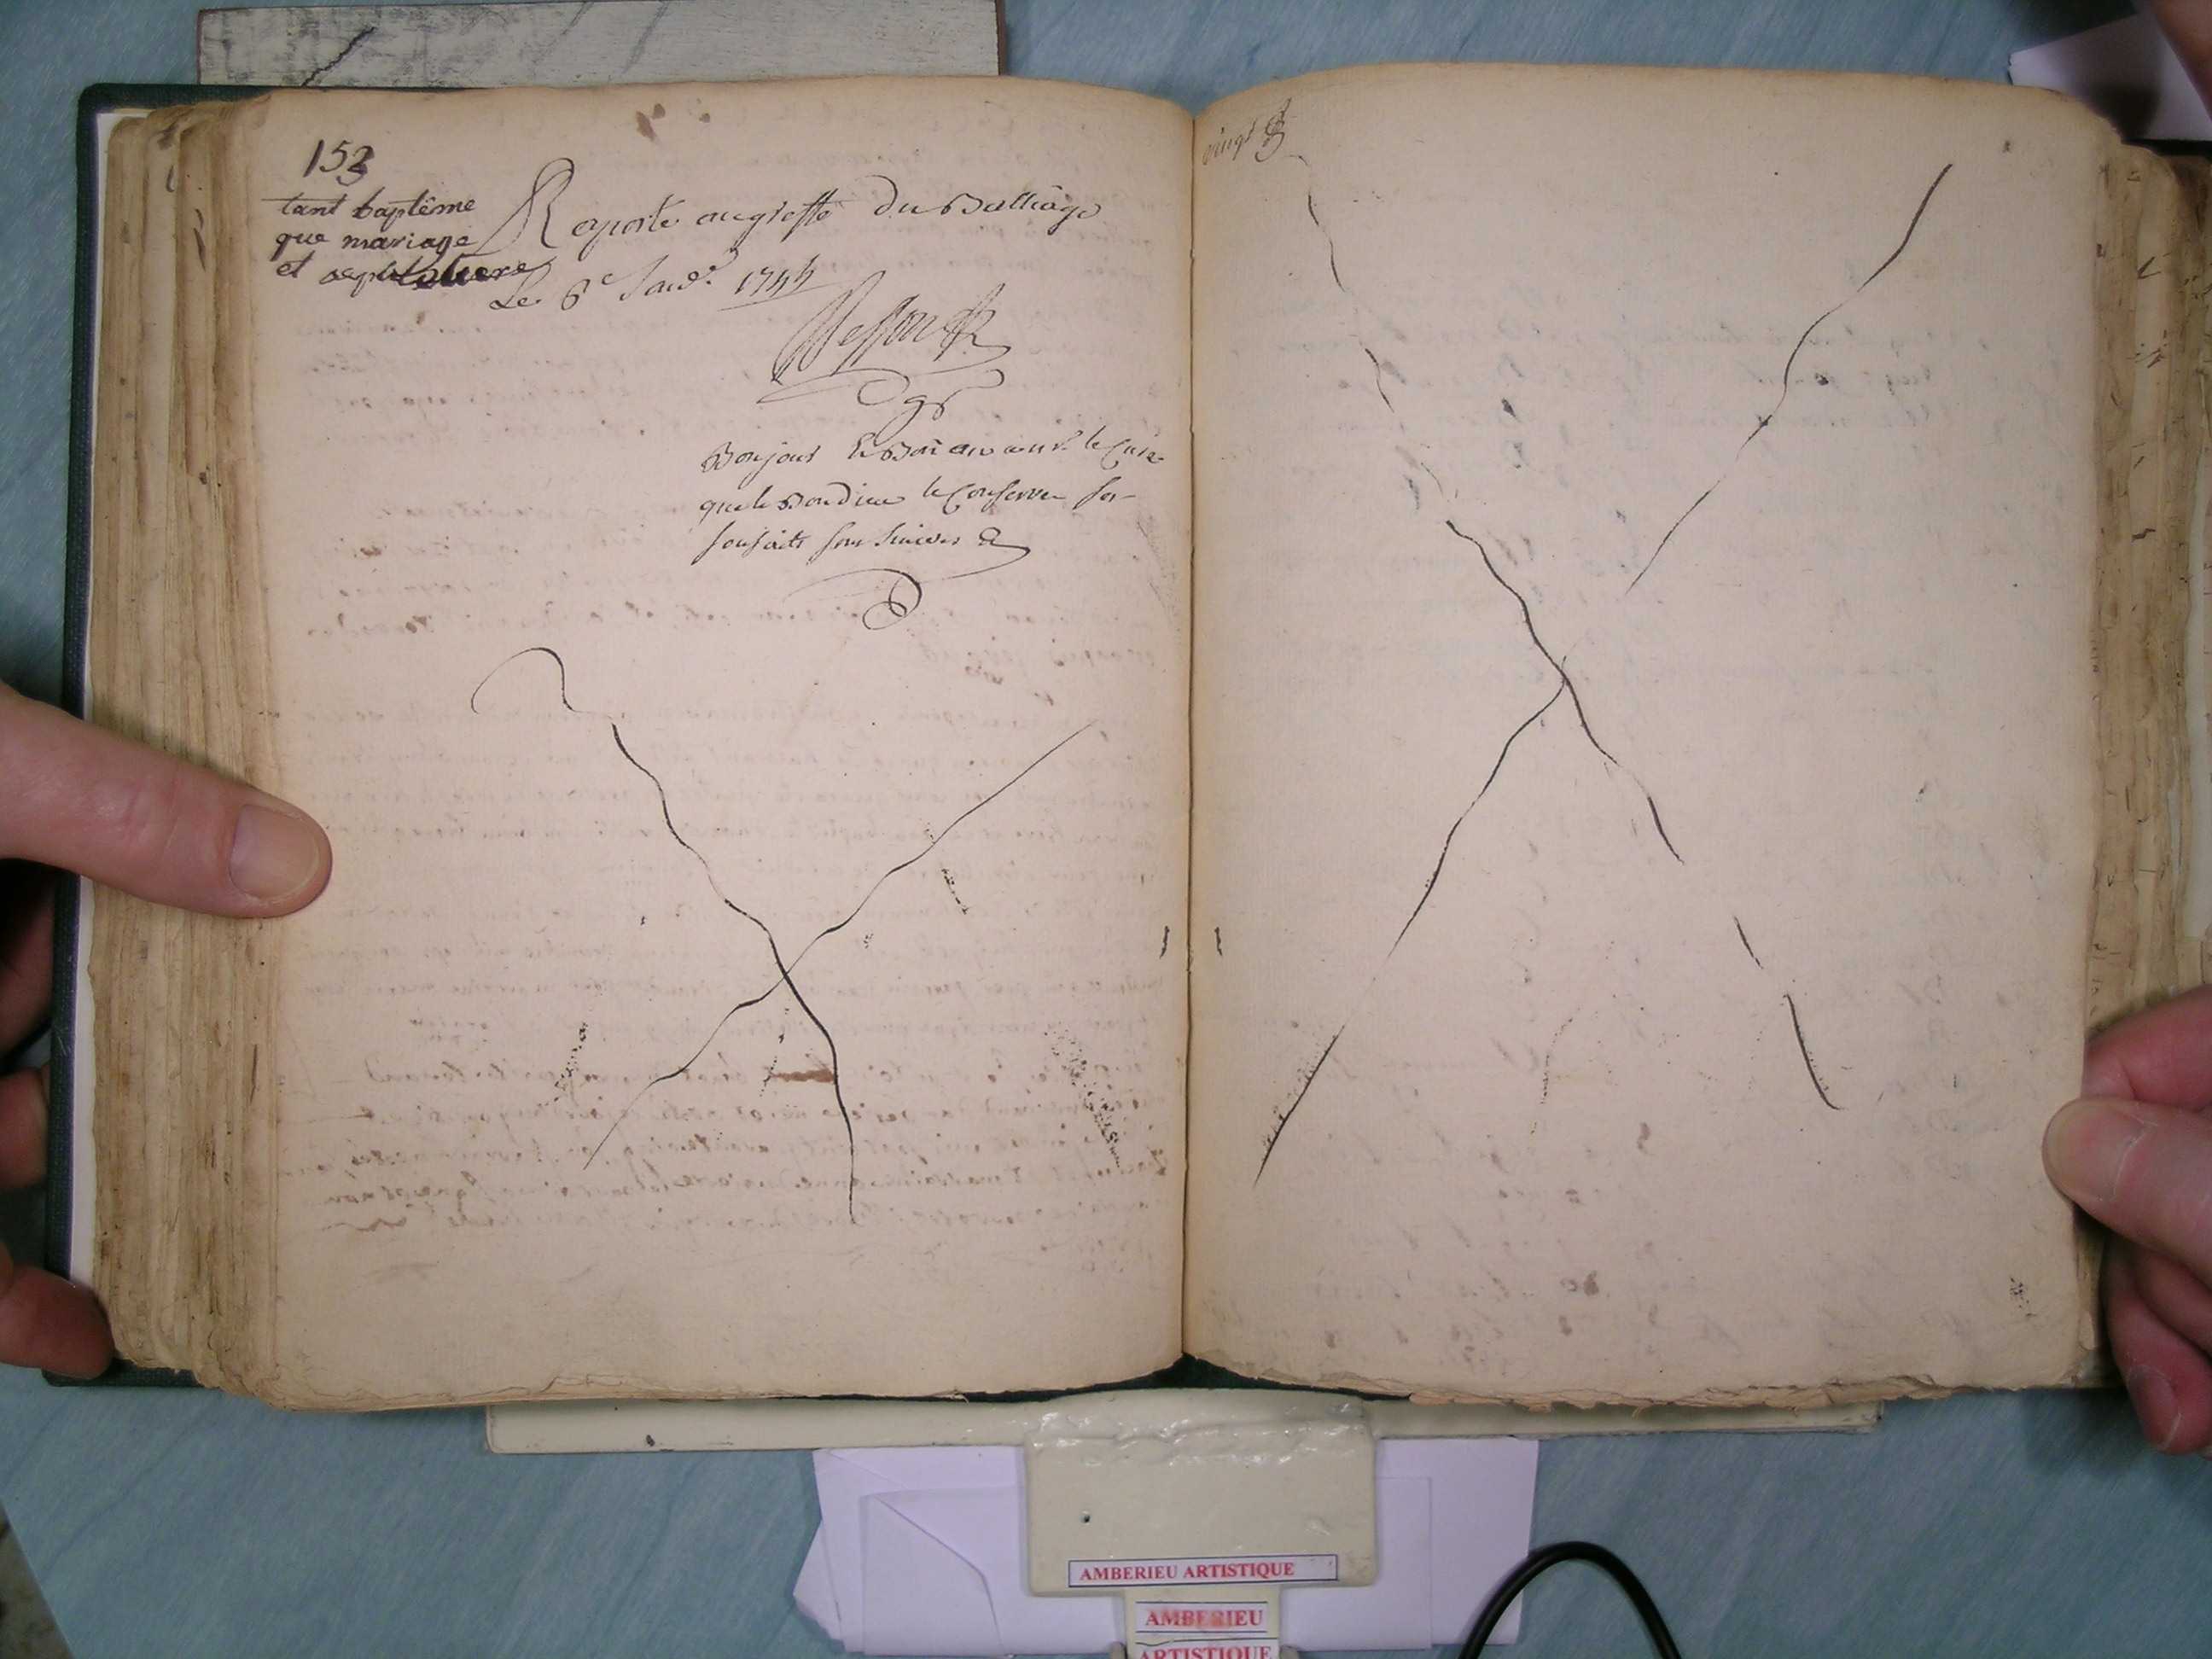 153
tant baptême
que mariage
et sepulture
Raporté au greffe du Balliage
Le 6e Janv.r 1744
Bonjour & Bon an a mr. le Curé
que le Bon dieu le Conserve
souhaits sont sinceres
vingt
AMBERIEU ARTISTIQUE
AMBERIEU
ARTISTIQUE